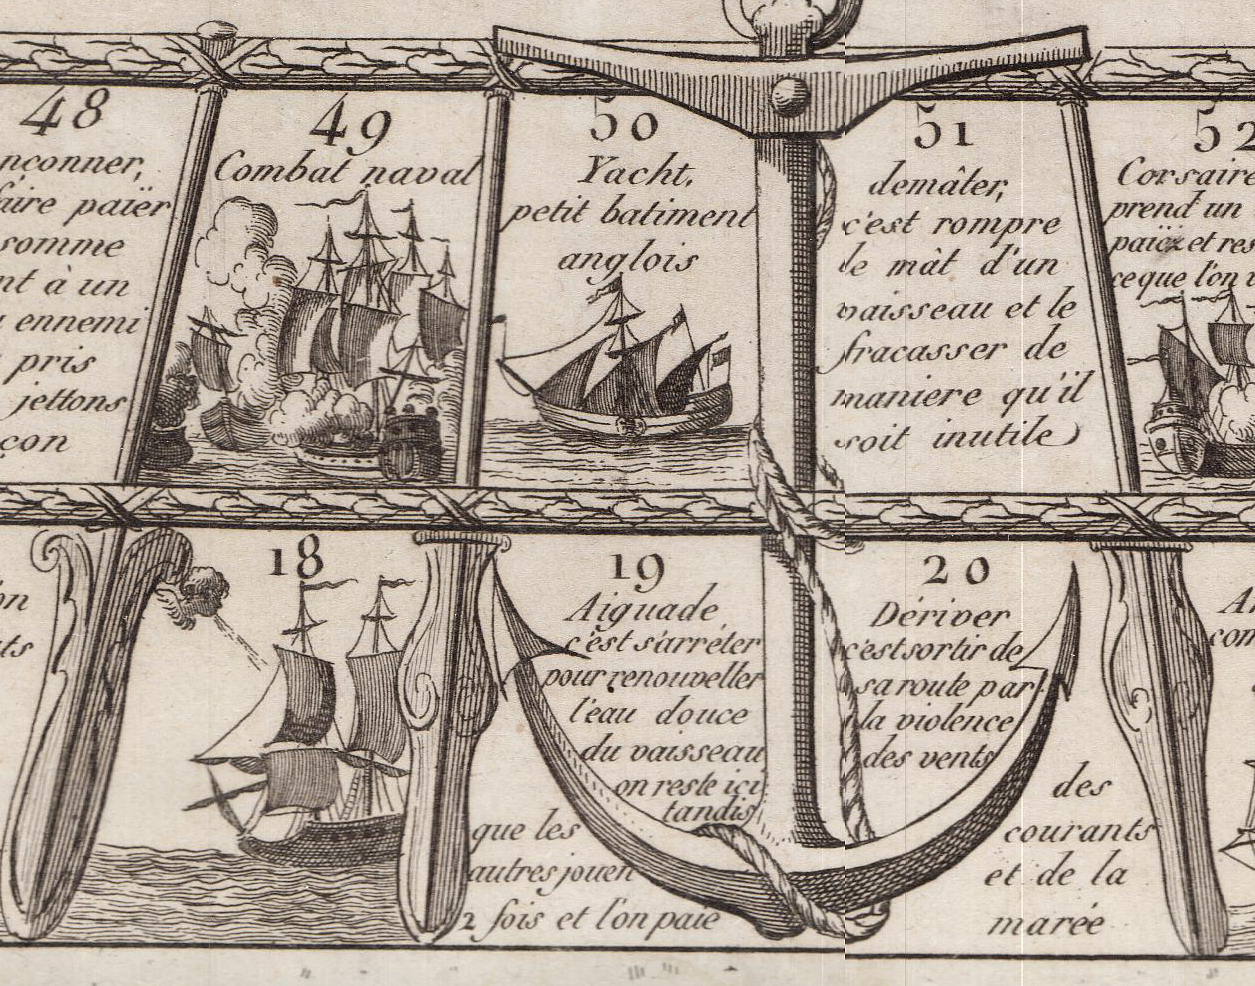 48
nçonner,
faire païer
somme
nt à un
ennemi
pris
jettons
çon
49
Combat naval
50
Yacht,
petit batiment
anglois
51
demâter,
c'est rompre
le mât d'un
vaisseau et le
fracasser de
maniere qu'il
soit inutile
52
Corsaire
prend un
païez et res
ce que l'on
on
ts
18
19
Aiguade
c'est s'arréter
pour renouveller
l'eau douce
du vaisseau
on reste ici
tandis
que les
autres jouen
2 fois et l'on paie
20
Dériver
c'est sortir de
sa route par
la violence
des vents
des
courants
et de la
marée
A
com